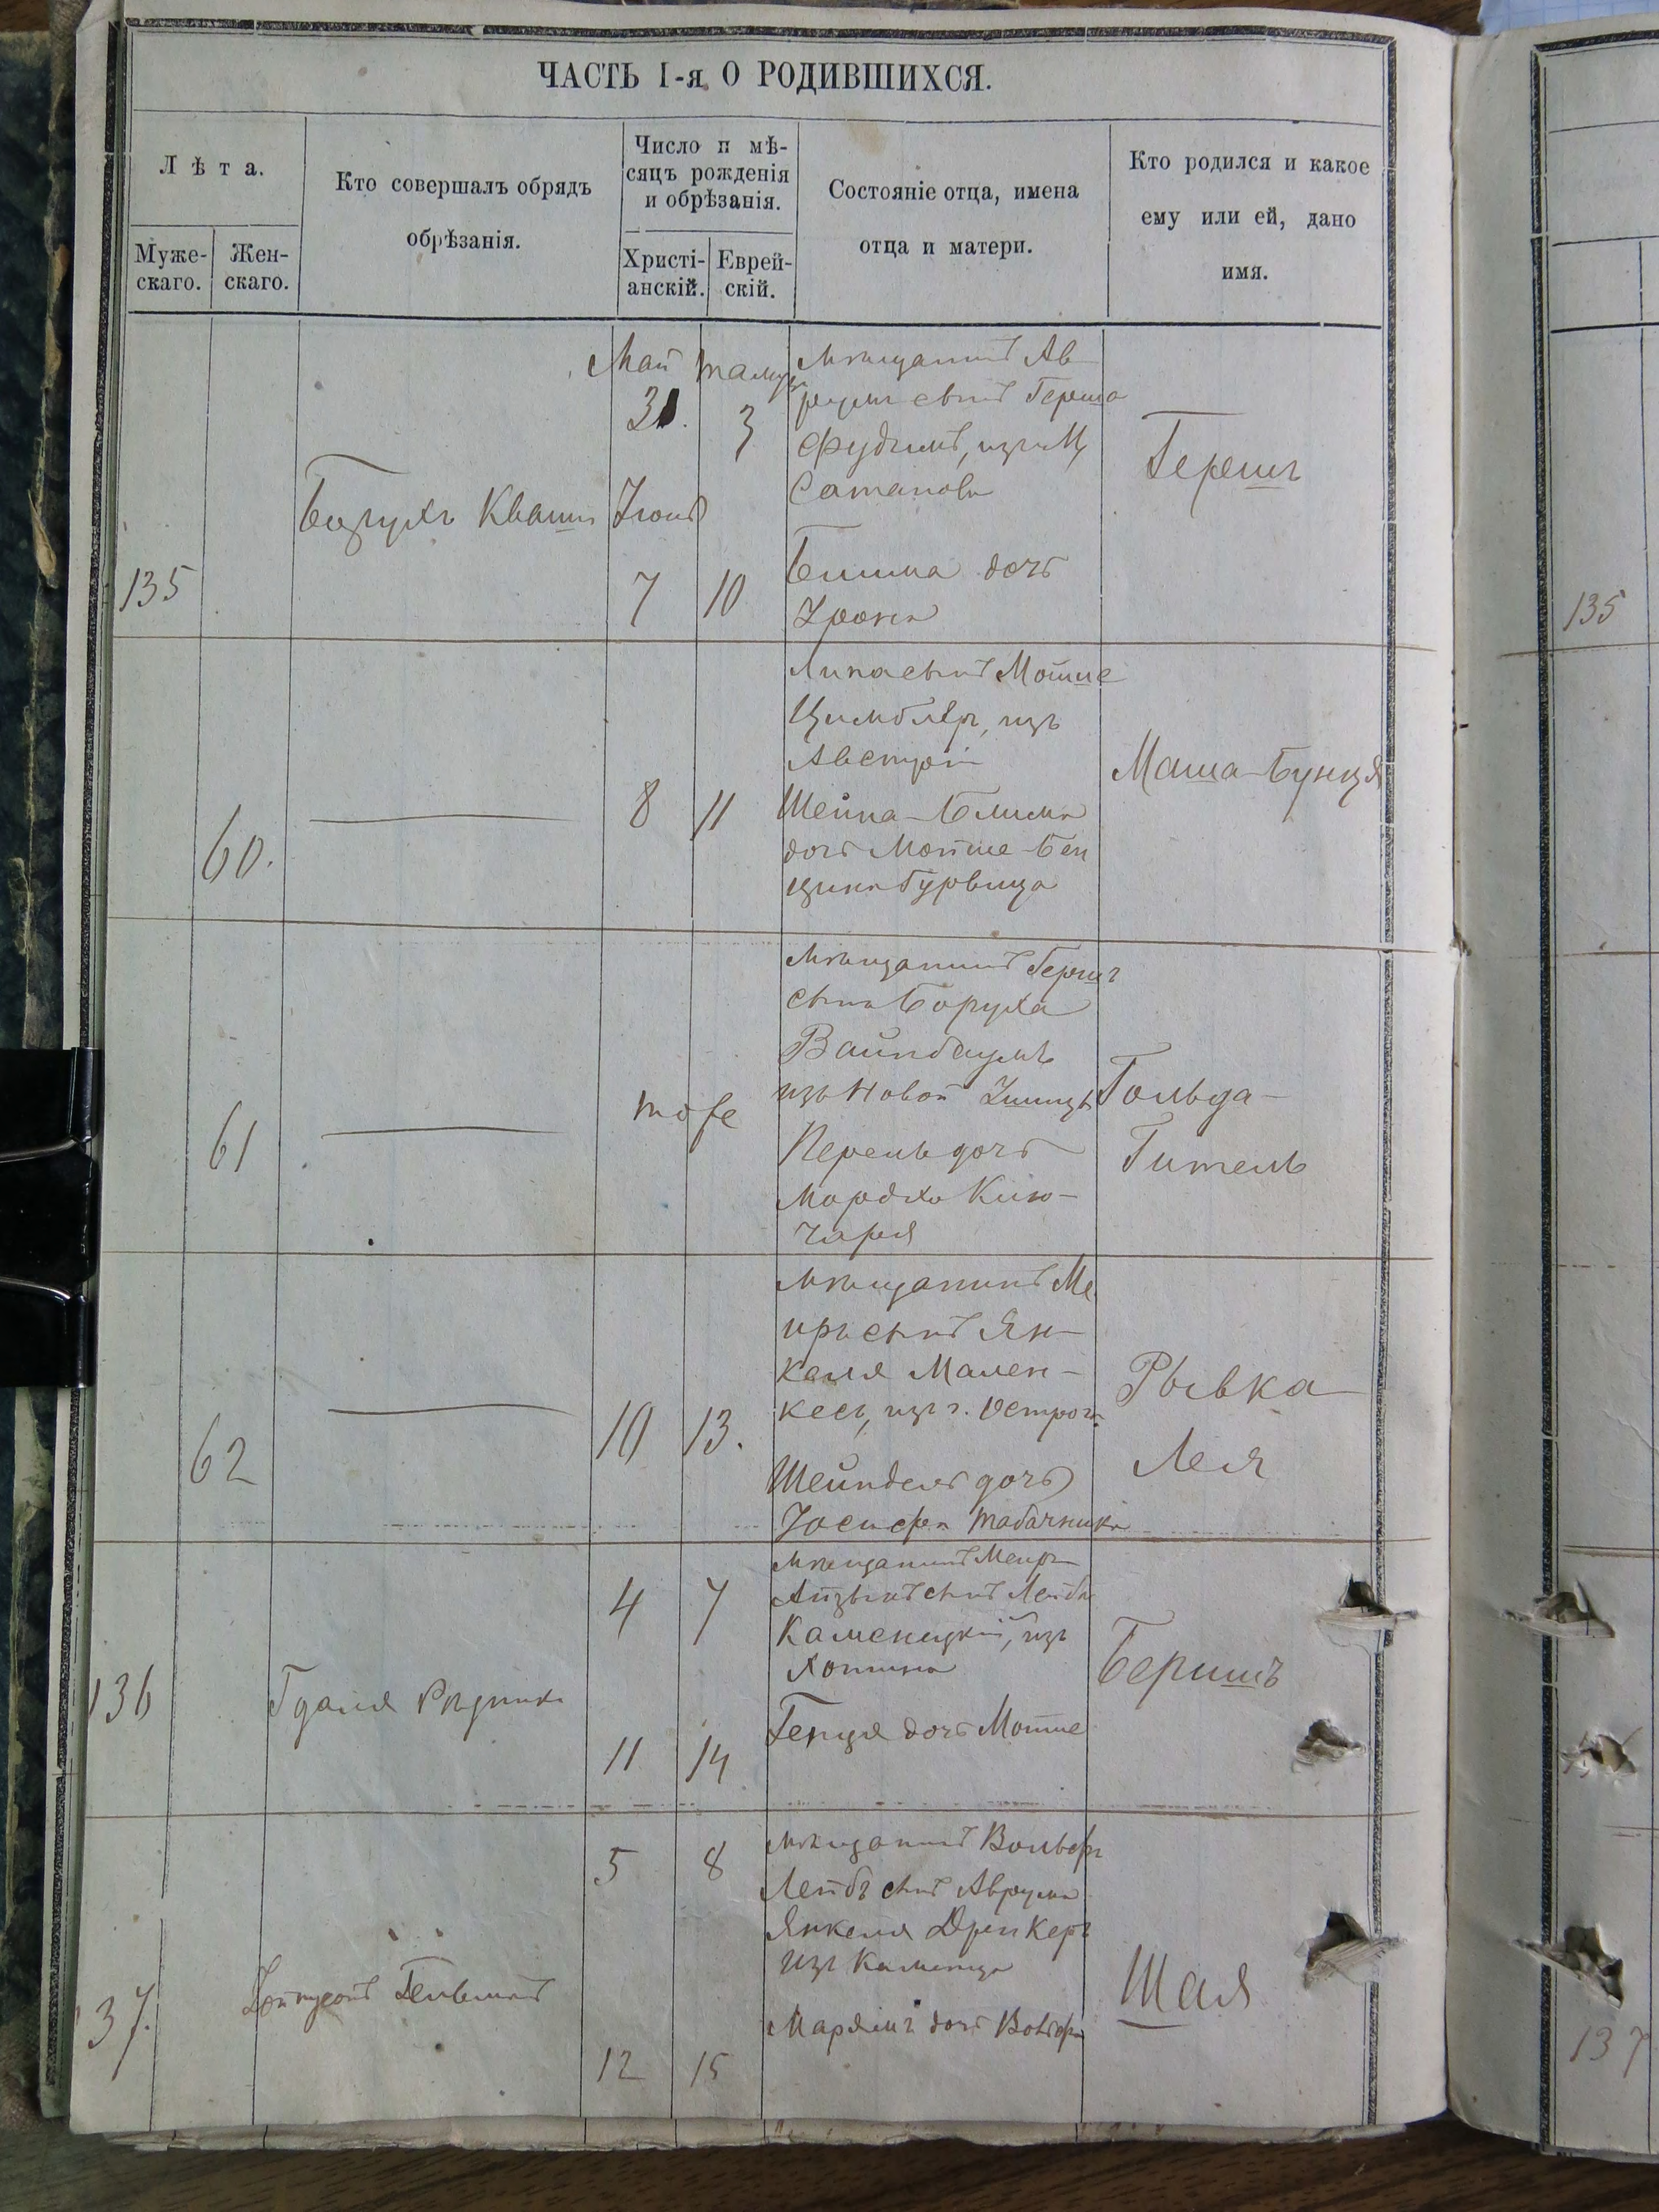 ЧАСТЬ I-я О РОДИВШИХСЯ.
Лѣта.
Муже-
скаго.
Жен-
скаго.
Кто совершалъ обрядъ
обрѣзанія.
Число и мѣ-
сяцъ рожденія
и обрѣзанія.
Христі-
анскій.
Еврей-
скій.
Состояніе отца, имена
отца и матери.
Кто родился и какое
ему или ей, дано
имя.
135
Борухъ Квашъ
Май
31.
Іюнь
7
Тамузъ
3
10
Мѣщанинъ Ав-
румъ сынъ Герша
изъ М.
Сатанова
дочь
Гершъ
60.
8
11
Липа сынъ Мошше
Цимблеръ, изъ
Австріи
Шейна-Блима
дочь Мошше-Бен
циона Гурвица
Маша-Бунця
61
тоже
Мѣщанинъ Гершъ
сынъ Боруха
Вайнбаумъ
изъ Новой Ушицы
Перель дочь
Мордко Клю-
чаря
Гольда-
Гитель
62
10
13.
Мѣщанинъ Ме
иръ сынъ Ян-
келя Мален-
кесъ, изъ г. Острога
Шейндель дочь
Іосифа Табачника
Рывка
Лея
136
Гдаля Рѣзникъ
4
7
11
14
Мѣщанинъ Меиръ
Айзыкъ сынъ Лейбы
Каменецкій, изъ
Хотина
Генця дочь Мошше
Беришъ
137.
Гельманъ
5
8
12
15
Мѣщанинъ Вольфъ
Лейбъ сынъ Аврума
Янкеля Дрейкеръ
изъ Каменца
Марямъ дочь Вольфа
Шая
135
137